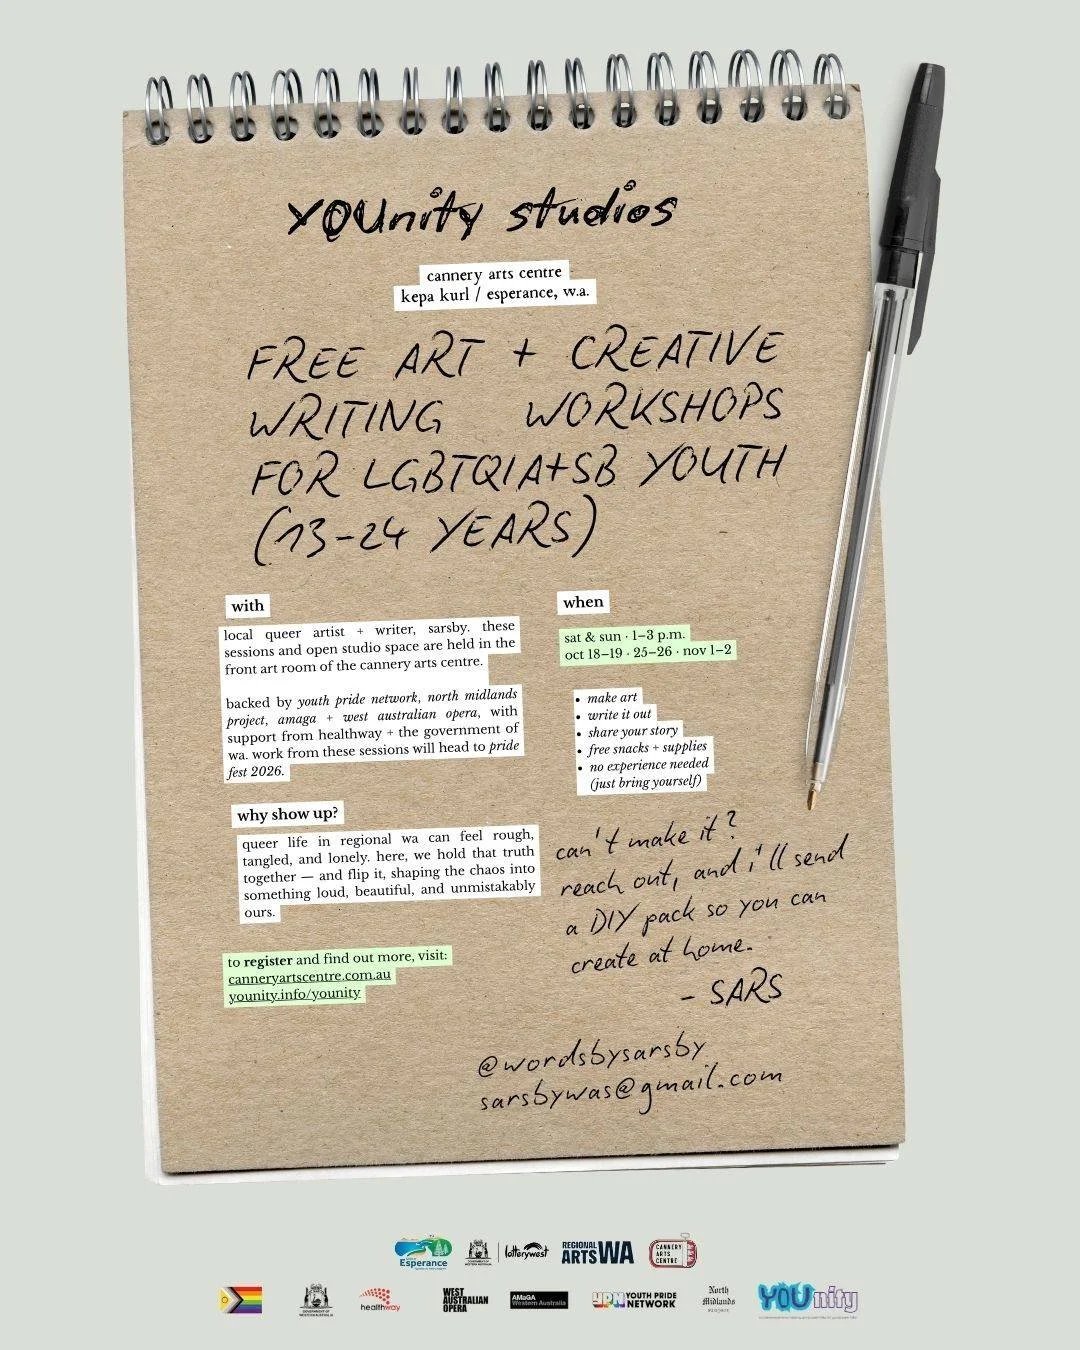 YOUnity studios
cannery arts centre
kepa kurl / esperance, w.a.
FREE ART + CREATIVE
WRITING WORKSHOPS
FOR LGBTQIA+SB YOUTH
(13-24 YEARS)
with
local queer artist + writer, sarsby. these
sessions and open studio space are held in the
front art room of the cannery arts centre.
backed by youth pride network, north midlands
project, amaga + west australian opera, with
support from healthway + the government of
wa. work from these sessions will head to pride
fest 2026.
why show up?
queer life in regional wa can feel rough,
tangled, and lonely. here, we hold that truth
together — and flip it, shaping the chaos into
something loud, beautiful, and unmistakably
ours.
to register and find out more, visit:
canneryartscentre.com.au
younity.info/younity
when
sat & sun · 1–3 p.m.
oct 18–19 · 25–26 · nov 1–2
• make art
• write it out
• share your story
• free snacks + supplies
• no experience needed
(just bring yourself)
can't make it?
reach out, and i'll send
a DIY pack so you can
create at home.
- SARS
@wordsbysarsby
sarsbywas@gmail.com
Esperance
GOVERNMENT OF
WESTERN AUSTRALIA
lotterywest
REGIONAL
ARTS WA
CANNERY
ARTS
CENTRE
GOVERNMENT OF
WESTERN AUSTRALIA
healthway
WEST
AUSTRALIAN
OPERA
AMaGA
Western Australia
YPN YOUTH PRIDE
NETWORK
North
Midlands
PROJECT
YOUnity